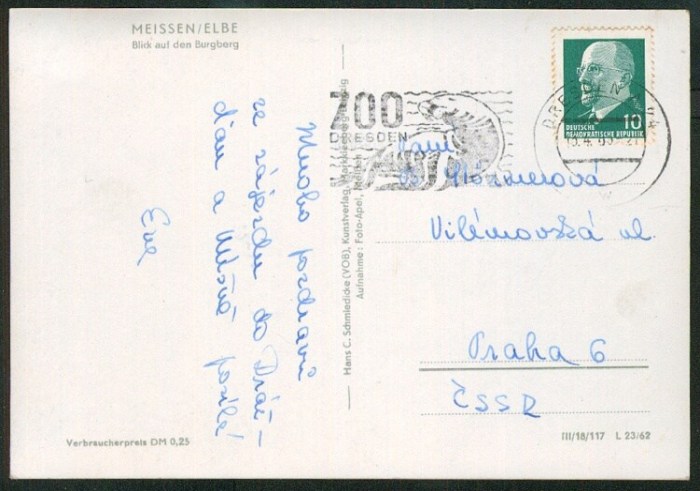 MEISSEN/ELBE
Blick auf den Burgberg
Mnoho pozdravů
ze zájezdu do Dráž-
ďan a Míšně posílá
Eva
Hans C. Schmiedicke (VOB), Kunstverlag, Markkleeberg-Leipzig
Aufnahme: Foto-Apel, Meißen
ZOO
DRESDEN
DRESDEN
10
DEUTSCHE
DEMOKRATISCHE REPUBLIK
Paní
Vilémovská ul.
Praha 6
ČSSR
Verbraucherpreis DM 0,25
III/18/117 L 23/62